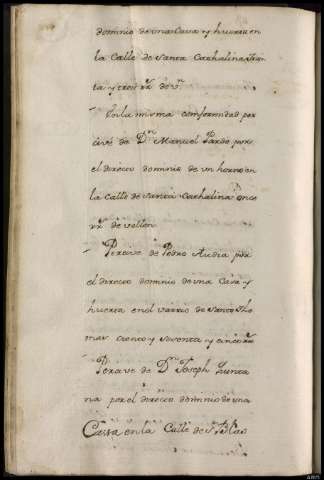 dominio de una Casa y huerta en
la Calle de Santa Cathalina trein
ta y tres rr.^s de v.^n
En la misma conformidad per
cive de D.^n Manuel Pardo por
el directo dominio de un horno en
la Calle de Santa Cathalina once
rr.^s de vellon
Percive de Pedro Audia por
el directo dominio de una Casa y
huerta en el varrio de Santo Tho
mas ciento y sesenta y cinco rr.^s
Percive de D.^n Joseph Quinta
na por el directo dominio de una
Casa en la Calle de S.^n Blas